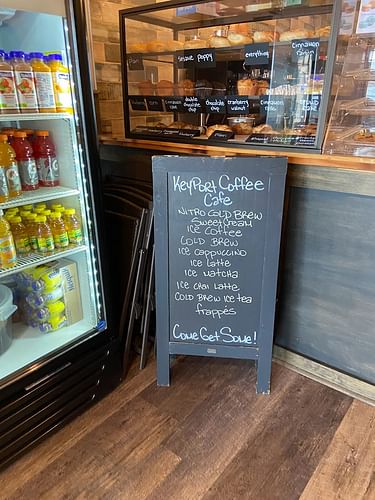 sesame
poppy
everything
cinnamon
raisin
Plain
corn
cinnamon
double
chocolate
chip
chocolate
chip
cranberry
walnut
cinnamon
KeyPort Coffee
Cafe
NITRO COLD BREW
Sweet Cream
ICE COFFEE
COLD BREW
ICE CAPPUCCINO
ICE Latte
ICE MATCHA
ICE CHAI LATTE
COLD BREW ICE TEA
frappés
Come Get Some!